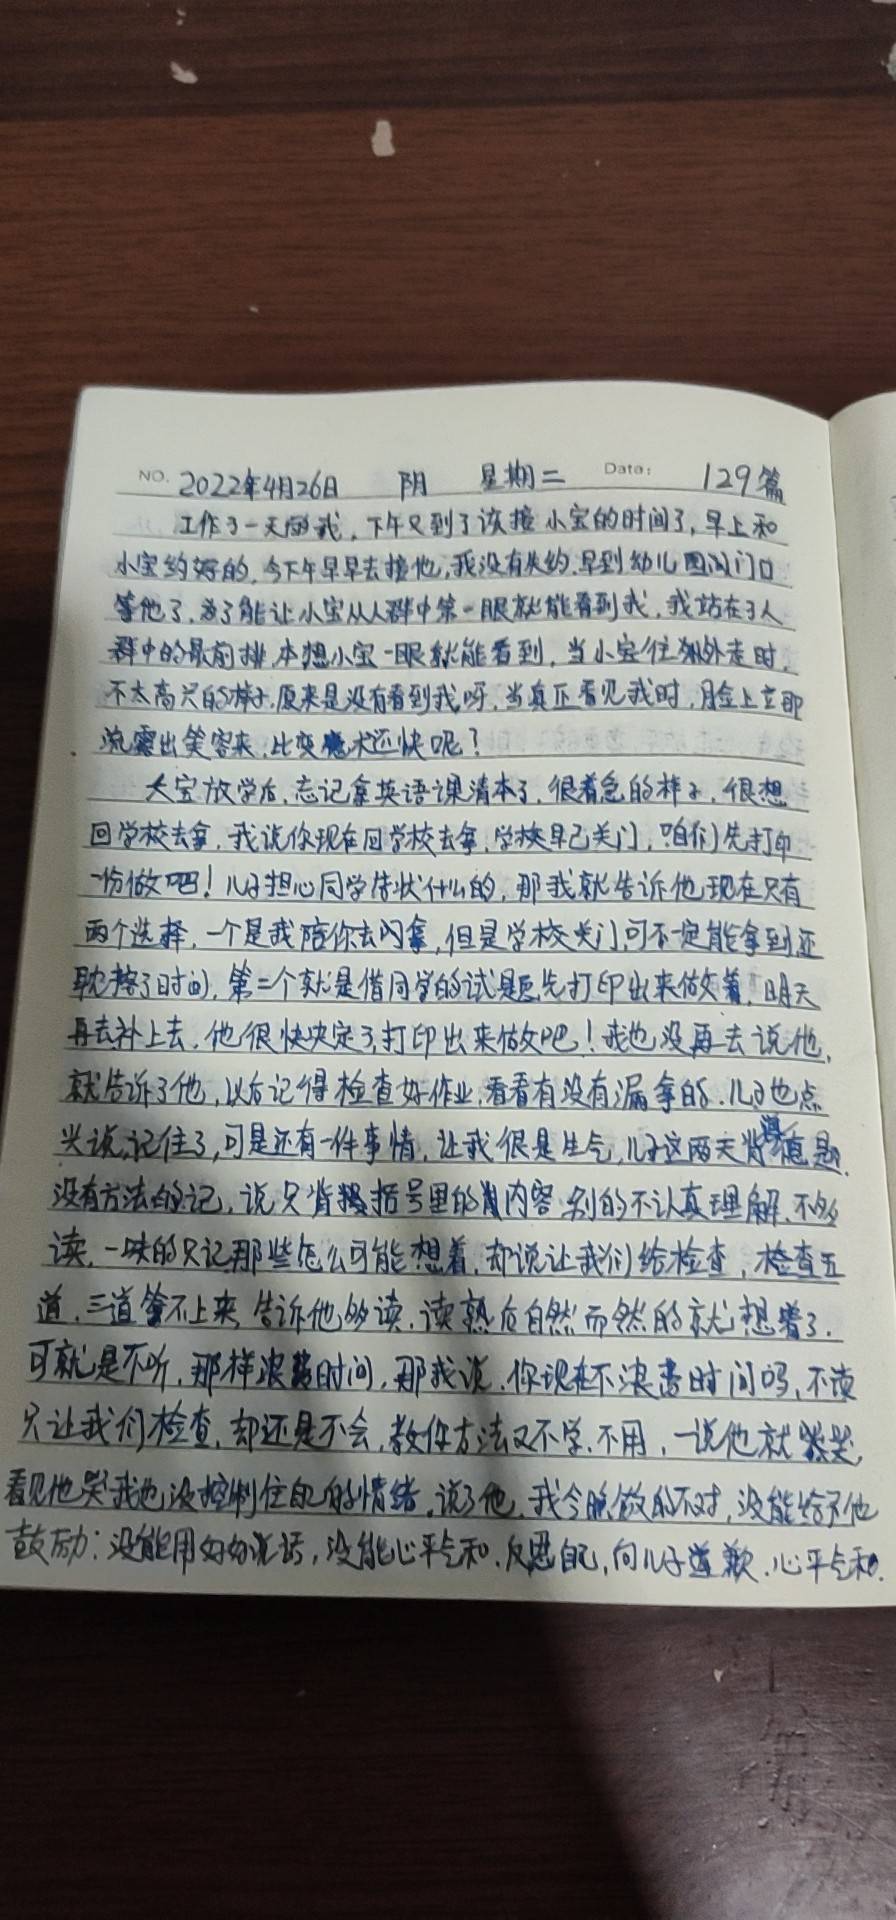 NO. 2022年4月26日 阴 星期二 Date: 129篇
工作了一天的我，下午又到了该接小宝的时间了，早上和
小宝约好的，今下午早早去接他，我没有失约，早到幼儿园门口
等他了，为了能让小宝从人群中第一眼就能看到我，我站在了人
群中的最前排，本想小宝一眼就能看到，当小宝往外走时，
不太高兴的样子，原来是没有看到我呀，当真正看见我时，脸上立即
流露出笑容来，比变魔术还快呢？
大宝放学后，忘记拿英语课清本了，很着急的样子，很想
回学校去拿，我说你现在回学校去拿，学校早已关门，咱们先打印
一份做吧！儿子担心同学告状什么的，那我就告诉他现在只有
两个选择，一个是我陪你去拿，但是学校关门，可不一定能拿到还
耽搁了时间，第二个就是借同学的试题先打印出来做着，明天
再去补上去，他很快决定了，打印出来做吧！我也没再去说他，
就告诉了他，以后记得检查好作业，看看有没有漏拿的，儿子也点
头说，记住了，可是还有一件事情，让我很是生气，儿子这两天背道题，
没有方法的记，说只背括号里的内容，别的不认真理解，不多
读，一味的只记那些怎么可能想着，却说让我们给检查，检查五
道，三道答不上来，告诉他多读，读熟后自然而然的就想着了，
可就是不听，那样浪费时间，那我说，你现在不浪费时间吗，不读
只让我们检查，却还是不会，教你方法又不学，不用，一说他就哭，
看见他哭我也没控制住自己的情绪，说了他，我今晚做的不对，没能给予他
鼓励：没能用好好说话，没能心平气和，反思自己，向儿子道歉，心平气和，